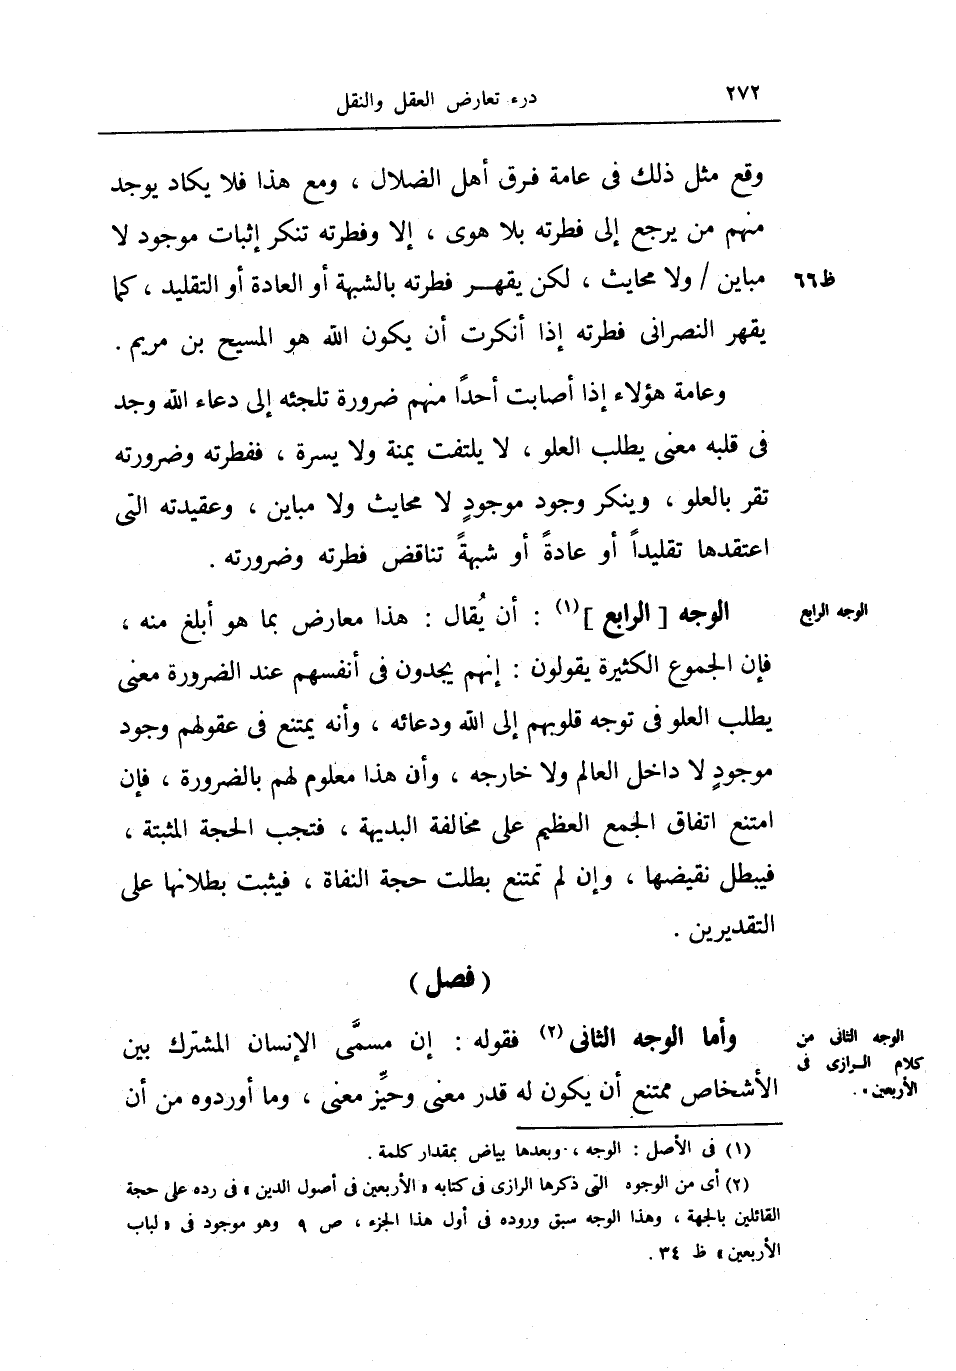 ٢٧٢
درء تعارض العقل والنقل
وقع مثل ذلك فى عامة فرق أهل الضلال ، ومع هذا فلا يكاد يوجد
منهم من يرجع إلى فطرته بلا هوى ، إلا وفطرته تنكر إثبات موجود لا
مباين / ولا محايث ، لكن يقهــر فطرته بالشبهة أو العادة أو التقليد ، كما
ظ٦٦
يقهر النصرانى فطرته إذا أنكرت أن يكون الله هو المسيح بن مريم .
وعامة هؤلاء إذا أصابت أحدًا منهم ضرورة تلجئه إلى دعاء الله وجد
فى قلبه معنى يطلب العلو ، لا يلتفت يمنة ولا يسرة ، ففطرته وضرورته
تقر بالعلو ، وينكر وجود موجودٍ لا محايث ولا مباين ، وعقيدته التى
اعتقدها تقليداً أو عادةً أو شبهةً تناقض فطرته وضرورته .
الوجه [ الرابع ] (١) : أن يُقال : هذا معارض بما هو أبلغ منه ،
الوجه الرابع
فإن الجموع الكثيرة يقولون : إنهم يجدون فى أنفسهم عند الضرورة معنى
يطلب العلو فى توجه قلوبهم إلى الله ودعائه ، وأنه يمتنع فى عقولهم وجود
موجودٍ لا داخل العالم ولا خارجه ، وأن هذا معلوم لهم بالضرورة ، فإن
امتنع اتفاق الجمع العظيم على مخالفة البديهة ، فتجب الحجة المثبتة ،
فيبطل نقيضها ، وإن لم تمتنع بطلت حجة النفاة ، فيثبت بطلانها على
التقديرين .
( فصل )
وأما الوجه الثانى (٢) فقوله : إن مسمَّى الإنسان المشترك بين
الأشخاص ممتنع أن يكون له قدر معنى وحيِّز معنى ، وما أوردوه من أن
الوجه الثانى من
كلام الــرازى فى
الأربعين» .
(١) فى الأصل : الوجه ، وبعدها بياض بمقدار كلمة .
(٢) أى من الوجوه التى ذكرها الرازى فى كتابه « الأربعين فى أصول الدين » فى رده على حجة
القائلين بالجهة ، وهذا الوجه سبق وروده فى أول هذا الجزء ، ص ٩ وهو موجود فى « لباب
الأربعين» ظ ٣٤ .